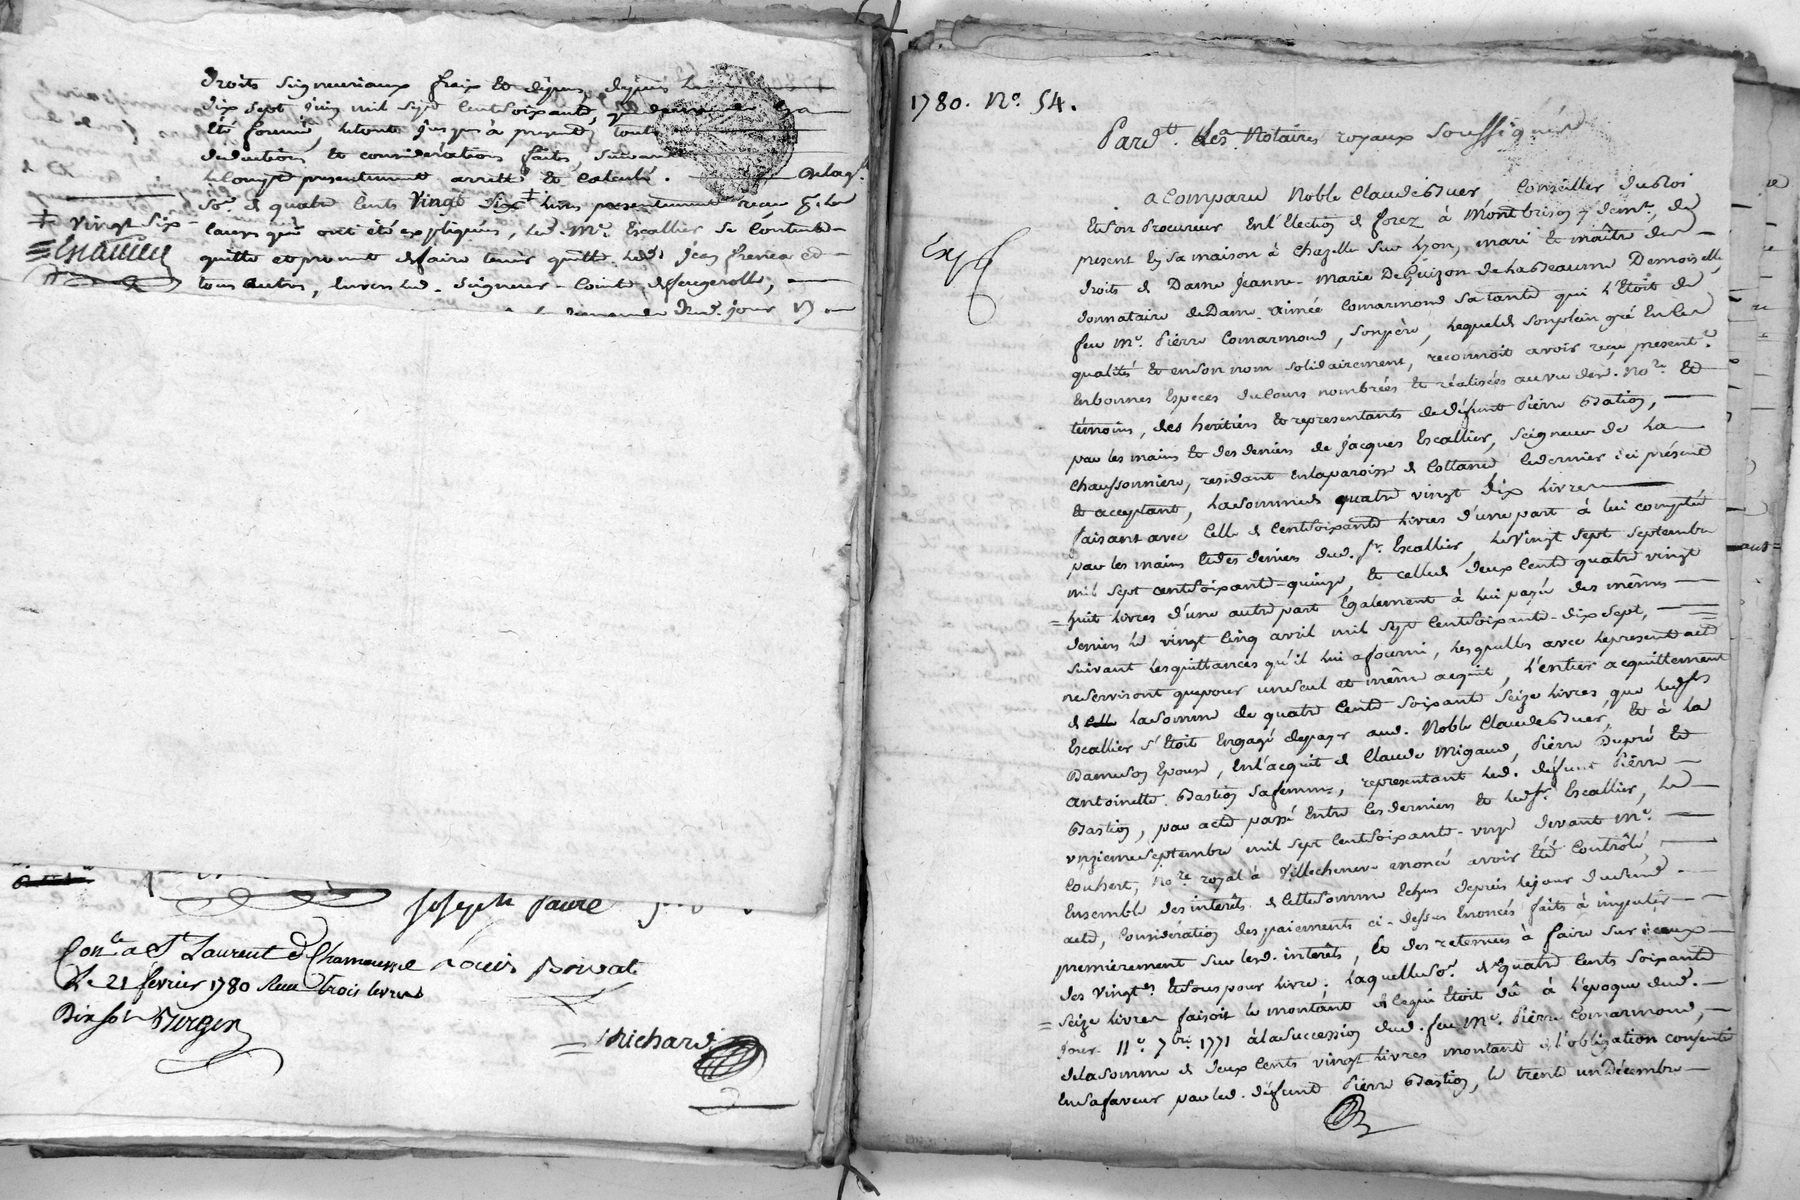 droits seigneuriaux fraix et dépens, depuis le
dix sept juin mil sept cent soixante,
été fourni, jusques à present, toutes
deductions et considérations faites, suivant
le Compte presentement arretté et calculé. de laq.
so.e de quatre cents vingt six livres presentement reçue p. les
+ vingt six
causes qui ont été expliquées, led. Me. Escallier se contente
quitte et promet de faire tenir quitte led. jean et
tous autres, envers led. Seigneur Comte de feugerolle,
dud. jour
Joseph faure
Con.lé a St Laurent de Chamousset Louis privat
Le 21 fevrier 1780 Reçu trois livres
Dix sols Berger
Richard
1780. No. 54.
Pard.t les Notaires royaux soussignés
Exp
a Comparu Noble Claude Buer Conseiller du Roi
et son Procureur en l'Election de forez à Montbrison y demt., de
present en sa maison à Chazelle sur Lyon, mari et maître des
droits de Dame Jeanne-Marie DeGuizon de la Beaume Demoiselle,
donnataire de Dame aimée Comarmond sa tante qui l'Etoit de
feu Me. Pierre Comarmond, son père, lequel de son plein gré en les
qualités et en son nom solidairement, reconnoit avoir reçu present.t
en bonnes Especes du cours nombrées et réalisées au vu desd. No.re et
témoins, des heritiers et representants de défunt Pierre Bation,
par les mains et des deniers de Jacques Escallier, Seigneur de la
Chaussonniere, residant en la paroisse de Cottance ce dernier ici présent
et acceptant, la somme de quatre vingt dix livres
faisant avec Celle de Cent soixante livres d'une part à lui comptée
par les mains et des deniers dud. Sr. Escallier, le vingt sept septembre
mil sept cent soixante-quinze, et celle de deux Cents quatre vingt
huit livres d'une autre part Egalement à lui payée des mêmes
deniers le vingt Cinq avril mil sept Cent soixante-dix sept,
suivant les quittances qu'il lui a fourni, lesquelles avec le present acte
ne serviront que pour un seul et même acquit, l'entier acquittement
de la somme de quatre Cents soixante seize livres que led. Sr
Escallier s'Etoit Engagé de payer aud. Noble Claude Buer, et à la
Dame son Epouse, En l'acquit de Claude Migaud, Pierre Dupré et
antoinette Bastion sa femme, representant led. défunt Pierre
Bastion, par acte passé Entre ces derniers et led. Sr. Escallier, le
onzieme septembre mil sept Cent soixante-onze devant Me.
Couhert, No.re royal à Villechenève enoncé avoir Eté Contrôlé
Ensemble des interêts de cette somme Echus depuis le jour dud.
acte, Considération des paiements ci-dessus Enoncés faits à imputer
premierement sur lesd. interêts, et des retenues à faire sur iceux
des Vingt.es et sous pour livre; laquelle so.e de quatre Cents soixante
seize livres faisoit le montant de ce qui Etoit dû à l'époque dud.
jour 11e. 7bre. 1771 à la succession dud. feu Me. Pierre Comarmond,
de la somme de deux Cents vingt livres montant de l'obligation consentie
en sa faveur par led. défunt Pierre Bastion, le trente un Décembre